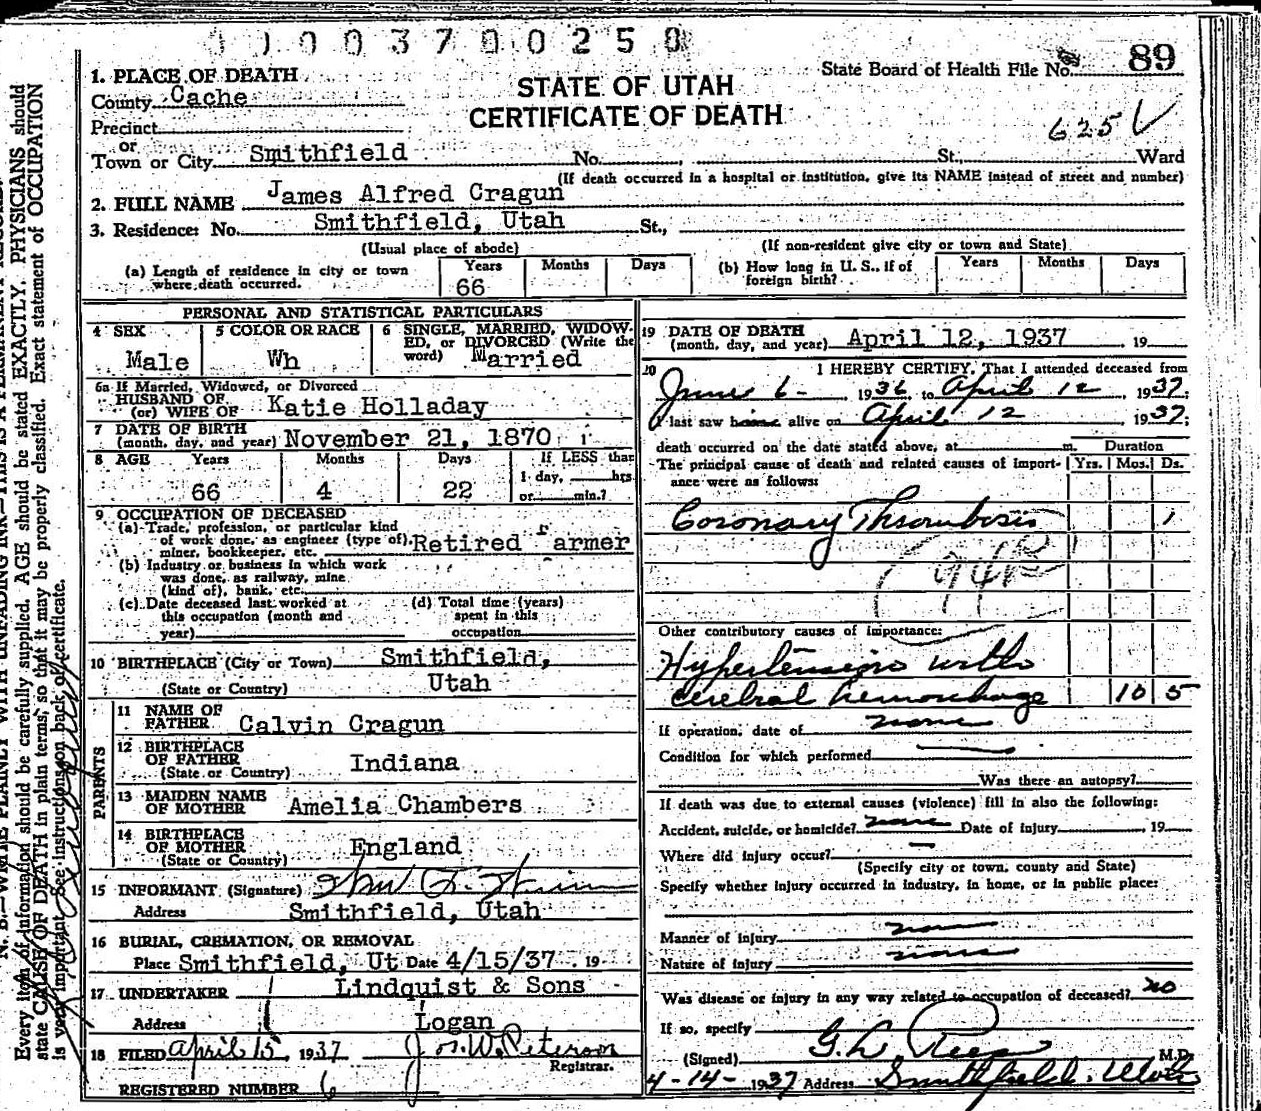 0 0 3 7 0 0 2 5 0
State Board of Health File No. 89
1. PLACE OF DEATH
STATE OF UTAH
County Cache
CERTIFICATE OF DEATH
Precinct
625
or
Town or City Smithfield No. , St., Ward
(If death occurred in a hospital or institution, give its NAME instead of street and number)
2. FULL NAME James Alfred Cragun
3. Residence: No. Smithfield, Utah St.,
(Usual place of abode) (If non-resident give city or town and State)
(a) Length of residence in city or town where death occurred. Years 66 Months Days
(b) How long in U. S., if of foreign birth? Years Months Days
PERSONAL AND STATISTICAL PARTICULARS
4 SEX Male
5 COLOR OR RACE Wh
6 SINGLE, MARRIED, WIDOWED, or DIVORCED (Write the word) Married
6a If Married, Widowed, or Divorced
HUSBAND OF
(or) WIFE OF Katie Holladay
7 DATE OF BIRTH
(month, day, and year) November 21, 1870
8 AGE Years Months Days If LESS than
1 day, hrs.
66 4 22 or min.?
9 OCCUPATION OF DECEASED
(a) Trade, profession, or particular kind
of work done, as engineer (type of),
miner, bookkeeper, etc. Retired Farmer
(b) Industry or business in which work
was done, as railway, mine
(kind of), bank, etc.
(c) Date deceased last worked at
this occupation (month and
year)
(d) Total time (years)
spent in this
occupation
10 BIRTHPLACE (City or Town) Smithfield,
(State or Country) Utah
PARENTS
11 NAME OF
FATHER Calvin Cragun
12 BIRTHPLACE
OF FATHER Indiana
(State or Country)
13 MAIDEN NAME
OF MOTHER Amelia Chambers
14 BIRTHPLACE
OF MOTHER England
(State or Country)
15 INFORMANT (Signature)
Address Smithfield, Utah
16 BURIAL, CREMATION, OR REMOVAL
Place Smithfield, Ut Date 4/15/37 19
17 UNDERTAKER Lindquist & Sons
Address Logan
18 FILED April 15, 1937 Jos. W. Peterson
Registrar.
REGISTERED NUMBER 6
19 DATE OF DEATH
(month, day, and year) April 12, 1937 , 19
20 I HEREBY CERTIFY, That I attended deceased from
June 6 - , 1936 to April 12 , 1937;
I last saw him alive on April 12 , 1937;
death occurred on the date stated above, at m. Duration
The principal cause of death and related causes of importance were as follows: Yrs. Mos. Ds.
Coronary Thrombosis 1
Other contributory causes of importance:
Hypertension with
cerebral hemorrhage 10 5
If operation, date of none
Condition for which performed
Was there an autopsy?
If death was due to external causes (violence) fill in also the following:
Accident, suicide, or homicide? none Date of injury , 19
Where did injury occur?
(Specify city or town, county and State)
Specify whether injury occurred in industry, in home, or in public place:
Manner of Injury none
Nature of Injury none
Was disease or injury in any way related to occupation of deceased? no
If so, specify
(Signed) G. L. Rees M.D.
4-14- 1937 Address Smithfield, Utah
Every item of information should be carefully supplied. AGE should be stated EXACTLY. PHYSICIANS should
state CAUSE OF DEATH in plain terms, so that it may be properly classified. Exact statement of OCCUPATION
is very important. See instructions on back of certificate.